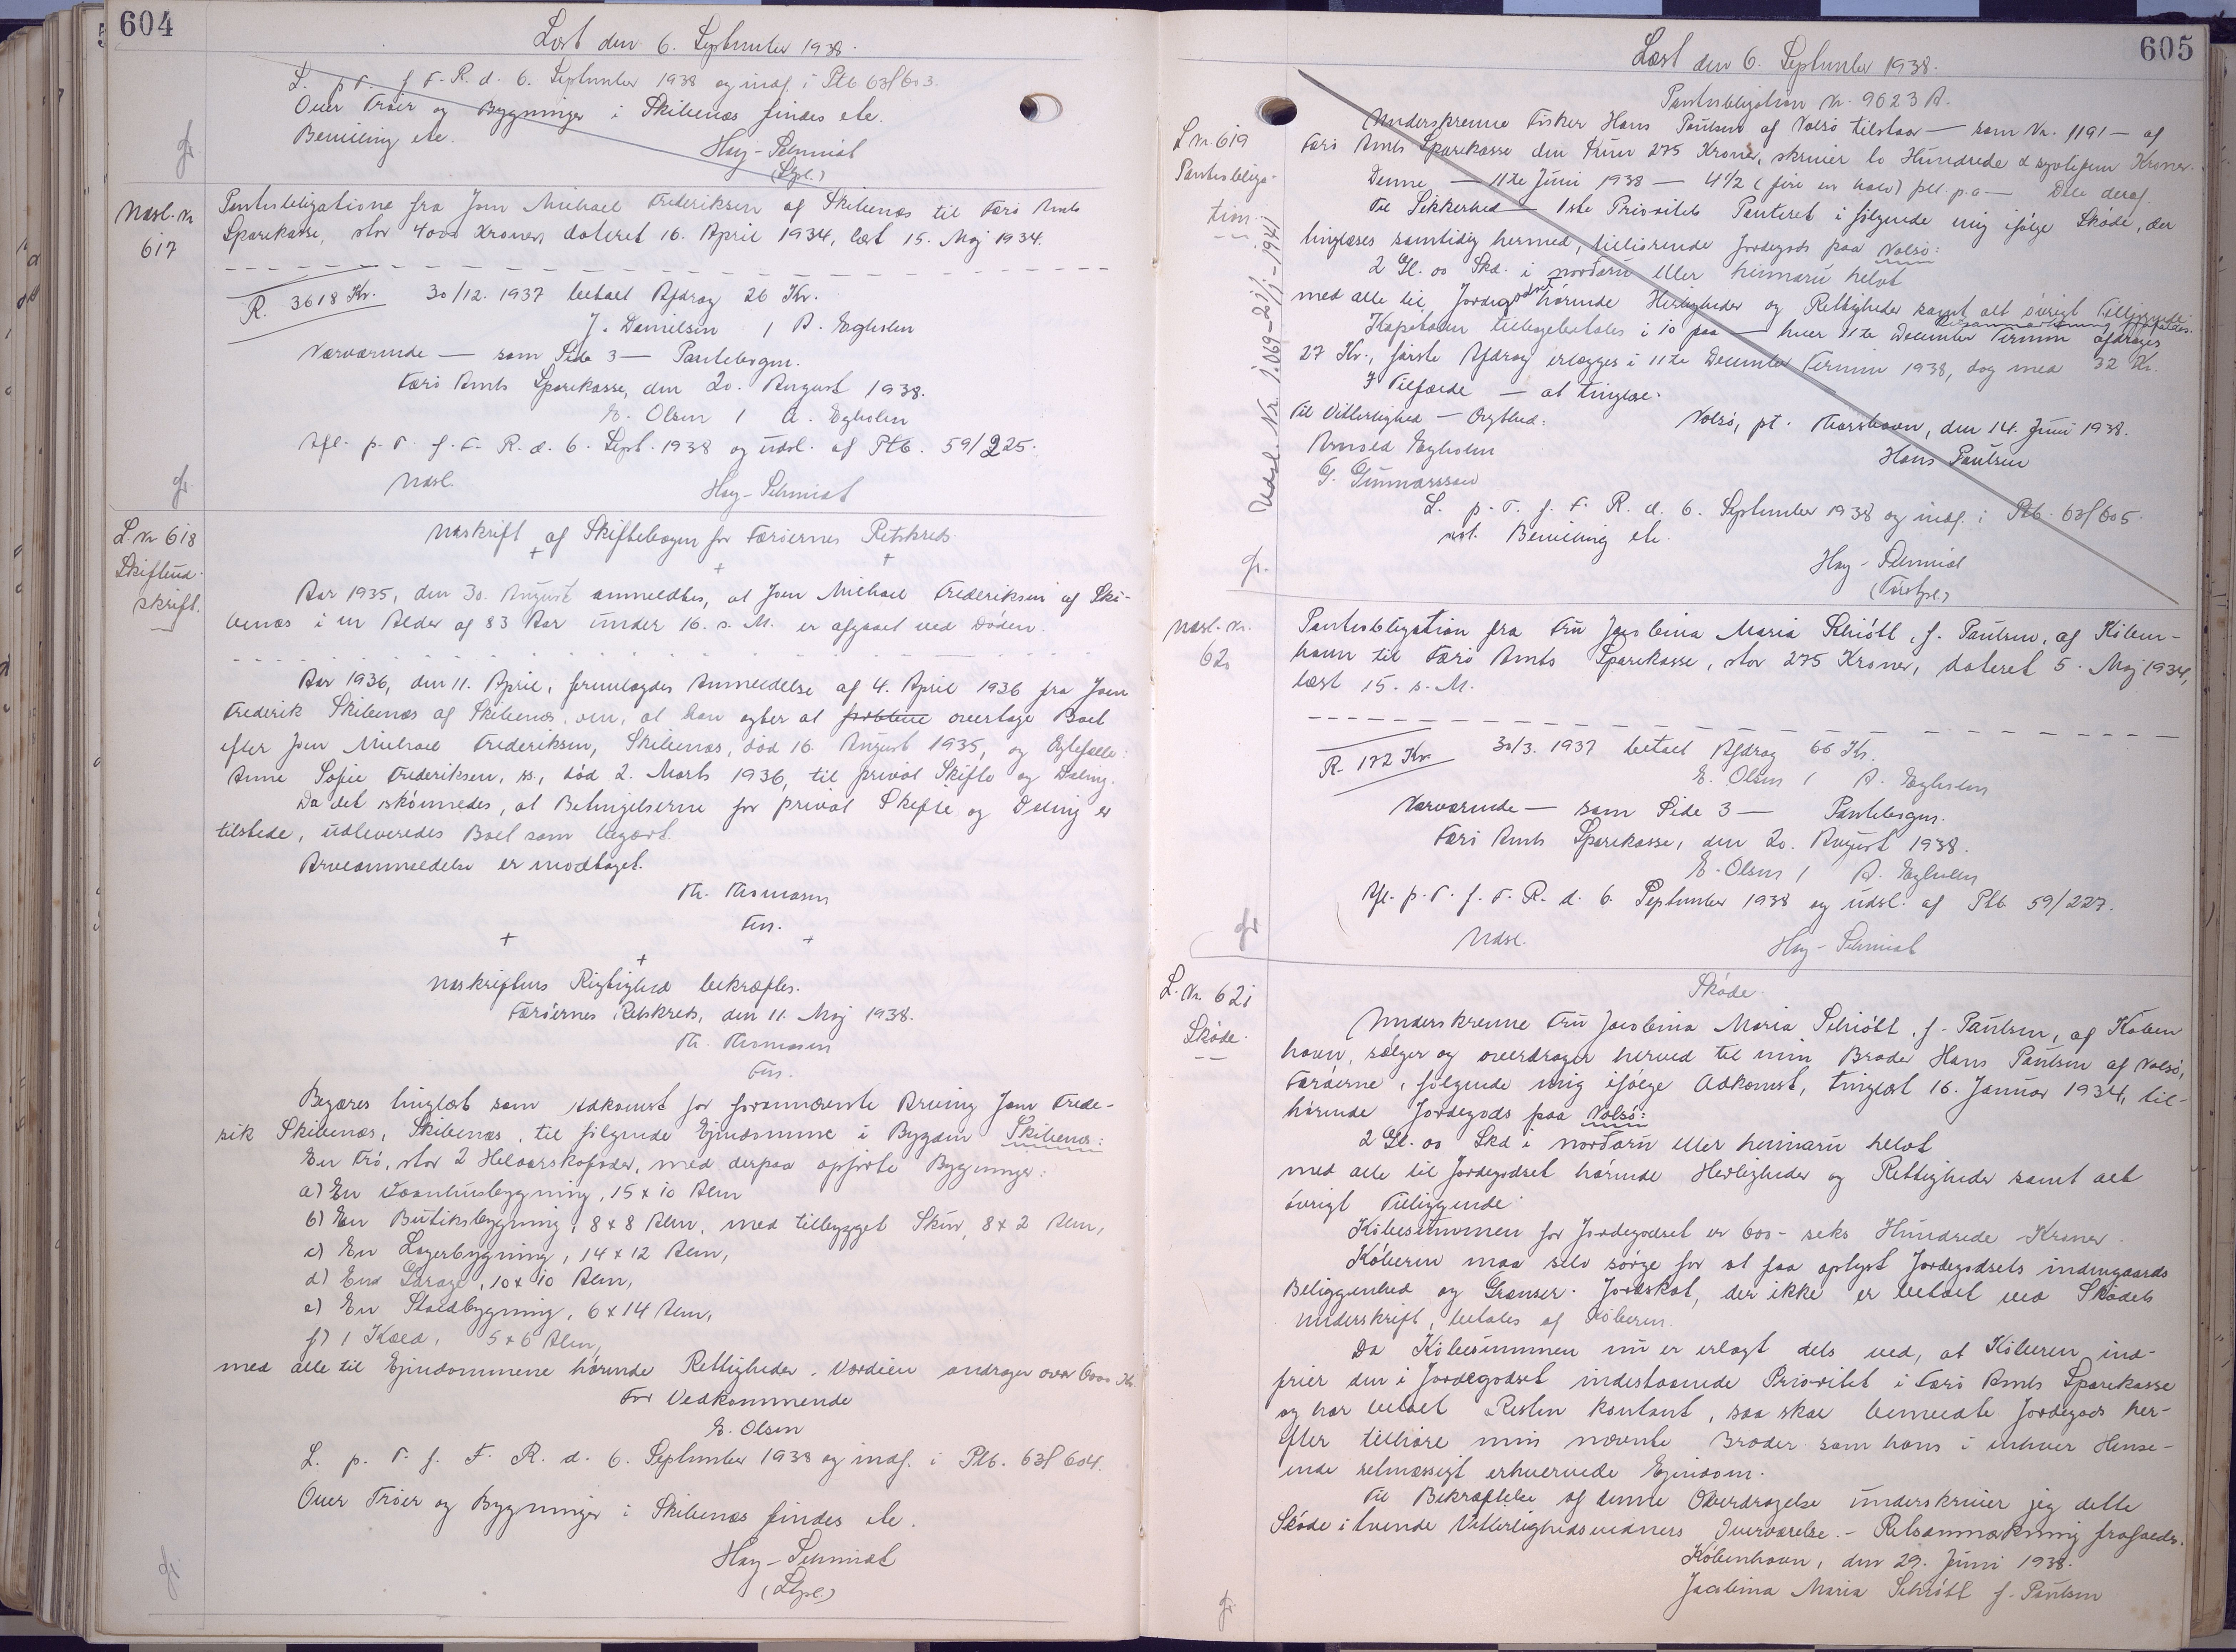 604
Læst den 6. September 1938.
L. p. T. f. F. R. d. 6. September 1938 og indf. i Ptb 63f603.
Over Trøer og Bygninger i Skibenæs findes etc.
Bevilling etc.
Hay-Schmidt
(Stpl.)
gr.
Udsl. Nr. 617
Pantobligation fra Joen Michael Frederiksen af Skibenæs til Færø Amts
Sparekasse, stor 4000 Kroner, dateret 16. April 1934, læst 15. Maj 1934.
R. 3618 Kr. 30/12. 1937 betalt Afdrag 26 Kr.
J. Danielsen / A. Egholm
Nærværende — som Side 3 — Pantebogen.
Færø Amts Sparekasse, den 20. August 1938.
E. Olsen / A. Egholm
Afl. p. T. f. F. R. d. 6. Sept. 1938 og udsl. af Ptb. 59/225.
Udsl. Hay-Schmidt
gr.
L. Nr 618
Skifteud-
skrift.
Udskrift af Skiftebogen for Færøernes Retskreds
+ + +
Aar 1935, den 30. August anmeldtes, at Joen Michael Frederiksen af Ski-
benæs i en Alder af 83 Aar under 16. s. M. er afgaaet ved Døden.
Aar 1936, den 11. April, fremlagdes Anmeldelse af 4. April 1936 fra Joen
Frederik Skibenæs af Skibenæs om, at han agter at overtage Boet
efter Joen Michael Frederiksen, Skibenæs, død 16. August 1935, og Egtefælle:
Anne Sofie Frederiksen, ss., død 2. Marts 1936, til privat Skifte og Deling.
Da det skønnedes, at Betingelserne for privat Skifte og Deling er
tilstede, udleveredes Boet som begært.
Arveanmeldelse er modtaget.
Th. Thomasen
Fm.
+ + +
Udskriftens Rigtighed bekræftes.
Færøernes Retskreds, den 11. Maj 1938.
Th. Thomasen
Fm.
Begæres tinglæst som Adkomst for forannævnte Arving Joen Frede-
rik Skibenæs, Skibenæs, til følgende Ejendomme i Bygden Skibenæs:
En Trø, stor 2 Helaarskofoder, med derpaa opførte Bygninger:
a) En Vaanhusbygning, 15 x 10 Alen
b) En Butiksbygning, 8 x 8 Alen, med tilbygget Skur, 8 x 2 Alen,
c) En Lagerbygning, 14 x 12 Alen,
d) End Garage, 10 x 10 Alen,
e) En Staldbygning, 6 x 14 Alen,
f) 1 Kæld, 5 x 6 Alen,
med alle til Ejendommene hørende Rettigheder. Værdien andrager over 6000 Kr.
For Vedkommende
E. Olsen
L. p. T. f. F. R. d. 6. September 1938 og indf. i Ptb. 63f 604.
Over Trøer og Bygninger i Skibenæs findes etc.
Hay-Schmidt
(Stpl.)
gr.
605
Læst den 6. September 1938.
Pantobligation Nr. 9623 A.
L Nr. 619
Pantobliga-
tion
Udsl. Nr. 1069-21/1-1941
Underskrevne Fisker Hans Paulsen af Nolsø tilstaar — som Nr. 1191 — af
Færø Amts Sparekasse den Sum 275 Kroner, skriver to Hundrede & syvtifem Kroner.
Denne — 11te Juni 1938 — 4 1/2 (fire en halv) pCt. p.a — Dele deraf.
Til Sikkerhed — 1ste Prioritets Panteret i følgende mig ifølge Skøde, der
tinglæses samtidig hermed, tilhørende Jordegods paa Nolsø:
2 Gl. 00 Skd. i nordaru eller heimaru helvt
med alle til Jordegodset hørende Herligheder og Rettigheder samt alt øvrigt Tilliggende
Retsanmærkning frafaldes.
Kapitalen tilbagebetales i 10 Aar — hver 11te December Termin afdrages
27 Kr., første Afdrag erlægges i 11te December Termin 1938, dog med 32 Kr.
I Tilfælde — at tinglæse.
Til Vitterlighed — Ægthed: Nolsø, pt. Thorshavn, den 14. Juni 1938.
Arnold Egholm
Hans Paulsen
G. Gunnarsson
L. p. T. f. F. R. d. 6. September 1938 og indf. i Ptb. 63f605.
Bevilling etc.
Hay-Schmidt
gr.
Udsl. Nr.
620
Pantobligation fra Fru Jacobina Maria Schiött, f. Paulsen, af Köben-
havn til Færø Amts Sparekasse, stor 275 Kroner, dateret 5. Maj 1934,
læst 15. s. M.
R. 172 Kr. 30/3. 1937 betalt Afdrag 66 Kr.
E. Olsen / A. Egholm
Nærværende — som Side 3 — Pantebogen.
Færø Amts Sparekasse, den 20. August 1938.
E. Olsen / A. Egholm
Afl. p. T. f. F. R. d. 6. September 1938 og udsl. af Ptb 59/227.
Udsl. Hay-Schmidt
gr.
L. Nr. 621
Skøde.
Skøde.
Underskrevne Fru Jacobina Maria Schiött, f. Paulsen, af Köben
havn, sælger og overdrager herved til min Broder Hans Paulsen af Nolsø,
Færøerne, følgende mig ifølge Adkomst, tinglæst 16. Januar 1934, til-
hørende Jordegods paa Nolsø:
2 Gl. 00 Skd i nordaru eller heimaru helvt
med alle til Jordegodset hørende Herligheder og Rettigheder samt alt
øvrigt Tilliggende.
Købesummen for Jordegodset er 600 - seks Hundrede - Kroner.
Køberen maa selv sørge for at faa oplyst Jordegodsets indengaards
Beliggenhed og Grænser. Jordskat, der ikke er betalt ved Skødets
Underskrift, betales af Køberen.
Da Købesummen nu er erlagt dels ved, at Køberen ind-
frier den i Jordegodset indestaaende Prioritet i Færø Amts Sparekasse
og har betalt Resten kontant, saa skal bemeldte Jordegods her-
efter tilhøre min nævnte Broder som hans i enhver Hense-
ende retmæssigt erhvervede Ejendom.
Til Bekræftelse af denne Overdragelse underskriver jeg dette
Skøde i tvende Vitterlighedsvidners Overværelse. - Retsanmærkning frafaldes.
København, den 29. Juni 1938.
Jacobina Maria Schiött f. Paulsen
gr.